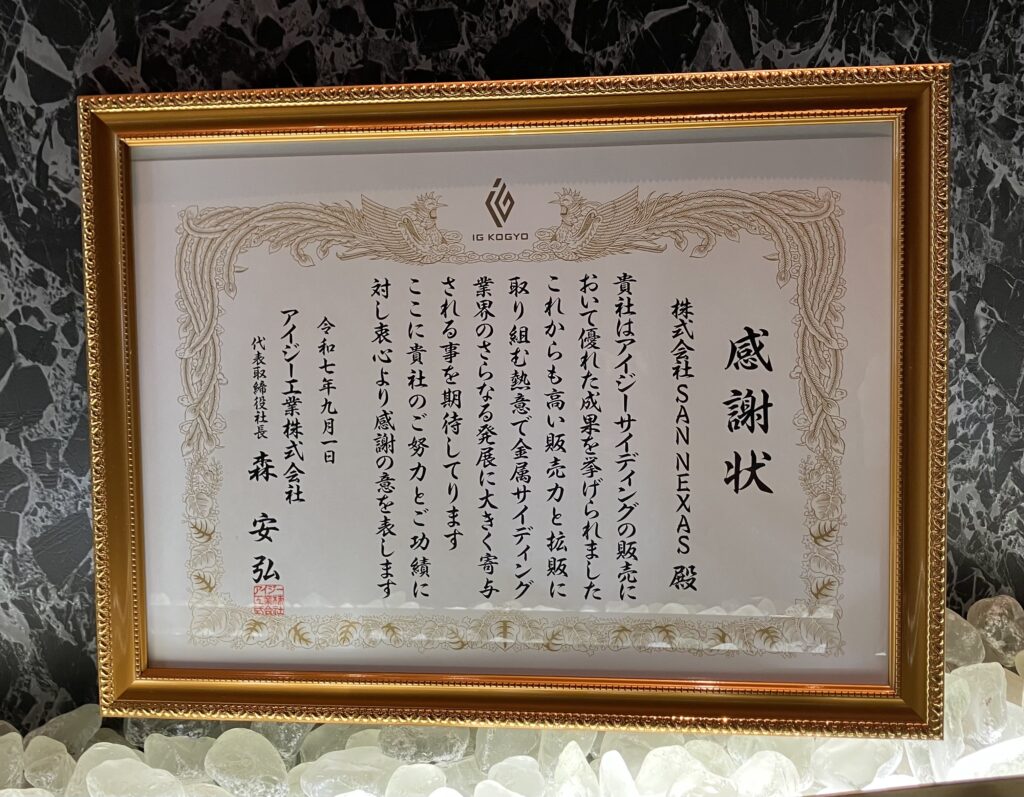 IG KOGYO
感謝状
株式会社SAN NEXAS 殿
貴社はアイジーサイディングの販売に
おいて優れた成果を挙げられました
これからも高い販売力と拡販に
取り組む熱意で金属サイディング
業界のさらなる発展に大きく寄与
される事を期待してります
ここに貴社のご努力とご功績に
対し衷心より感謝の意を表します
令和七年九月一日
アイジー工業株式会社
代表取締役社長 森 安 弘